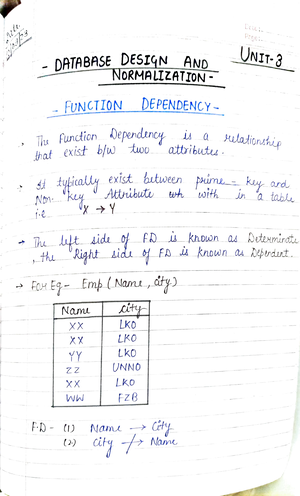 UNIT-3
- DATABASE DESIGN AND
NORMALIZATION -
- FUNCTION DEPENDENCY -
The Function Dependency is a relationship
that exist b/w two attributes.
It typically exist between prime = key and
Non-key Attribute with in a table
i.e X → Y
→ The left side of FD is known as Determinate
, the Right side of FD is known as Dependent.
→ For Eg - Emp (Name, city)
Name city
XX LKO
XX LKO
YY LKO
ZZ UNNO
XX LKO
WW FZB
FD - (1) Name → City
(2) City ↛ Name